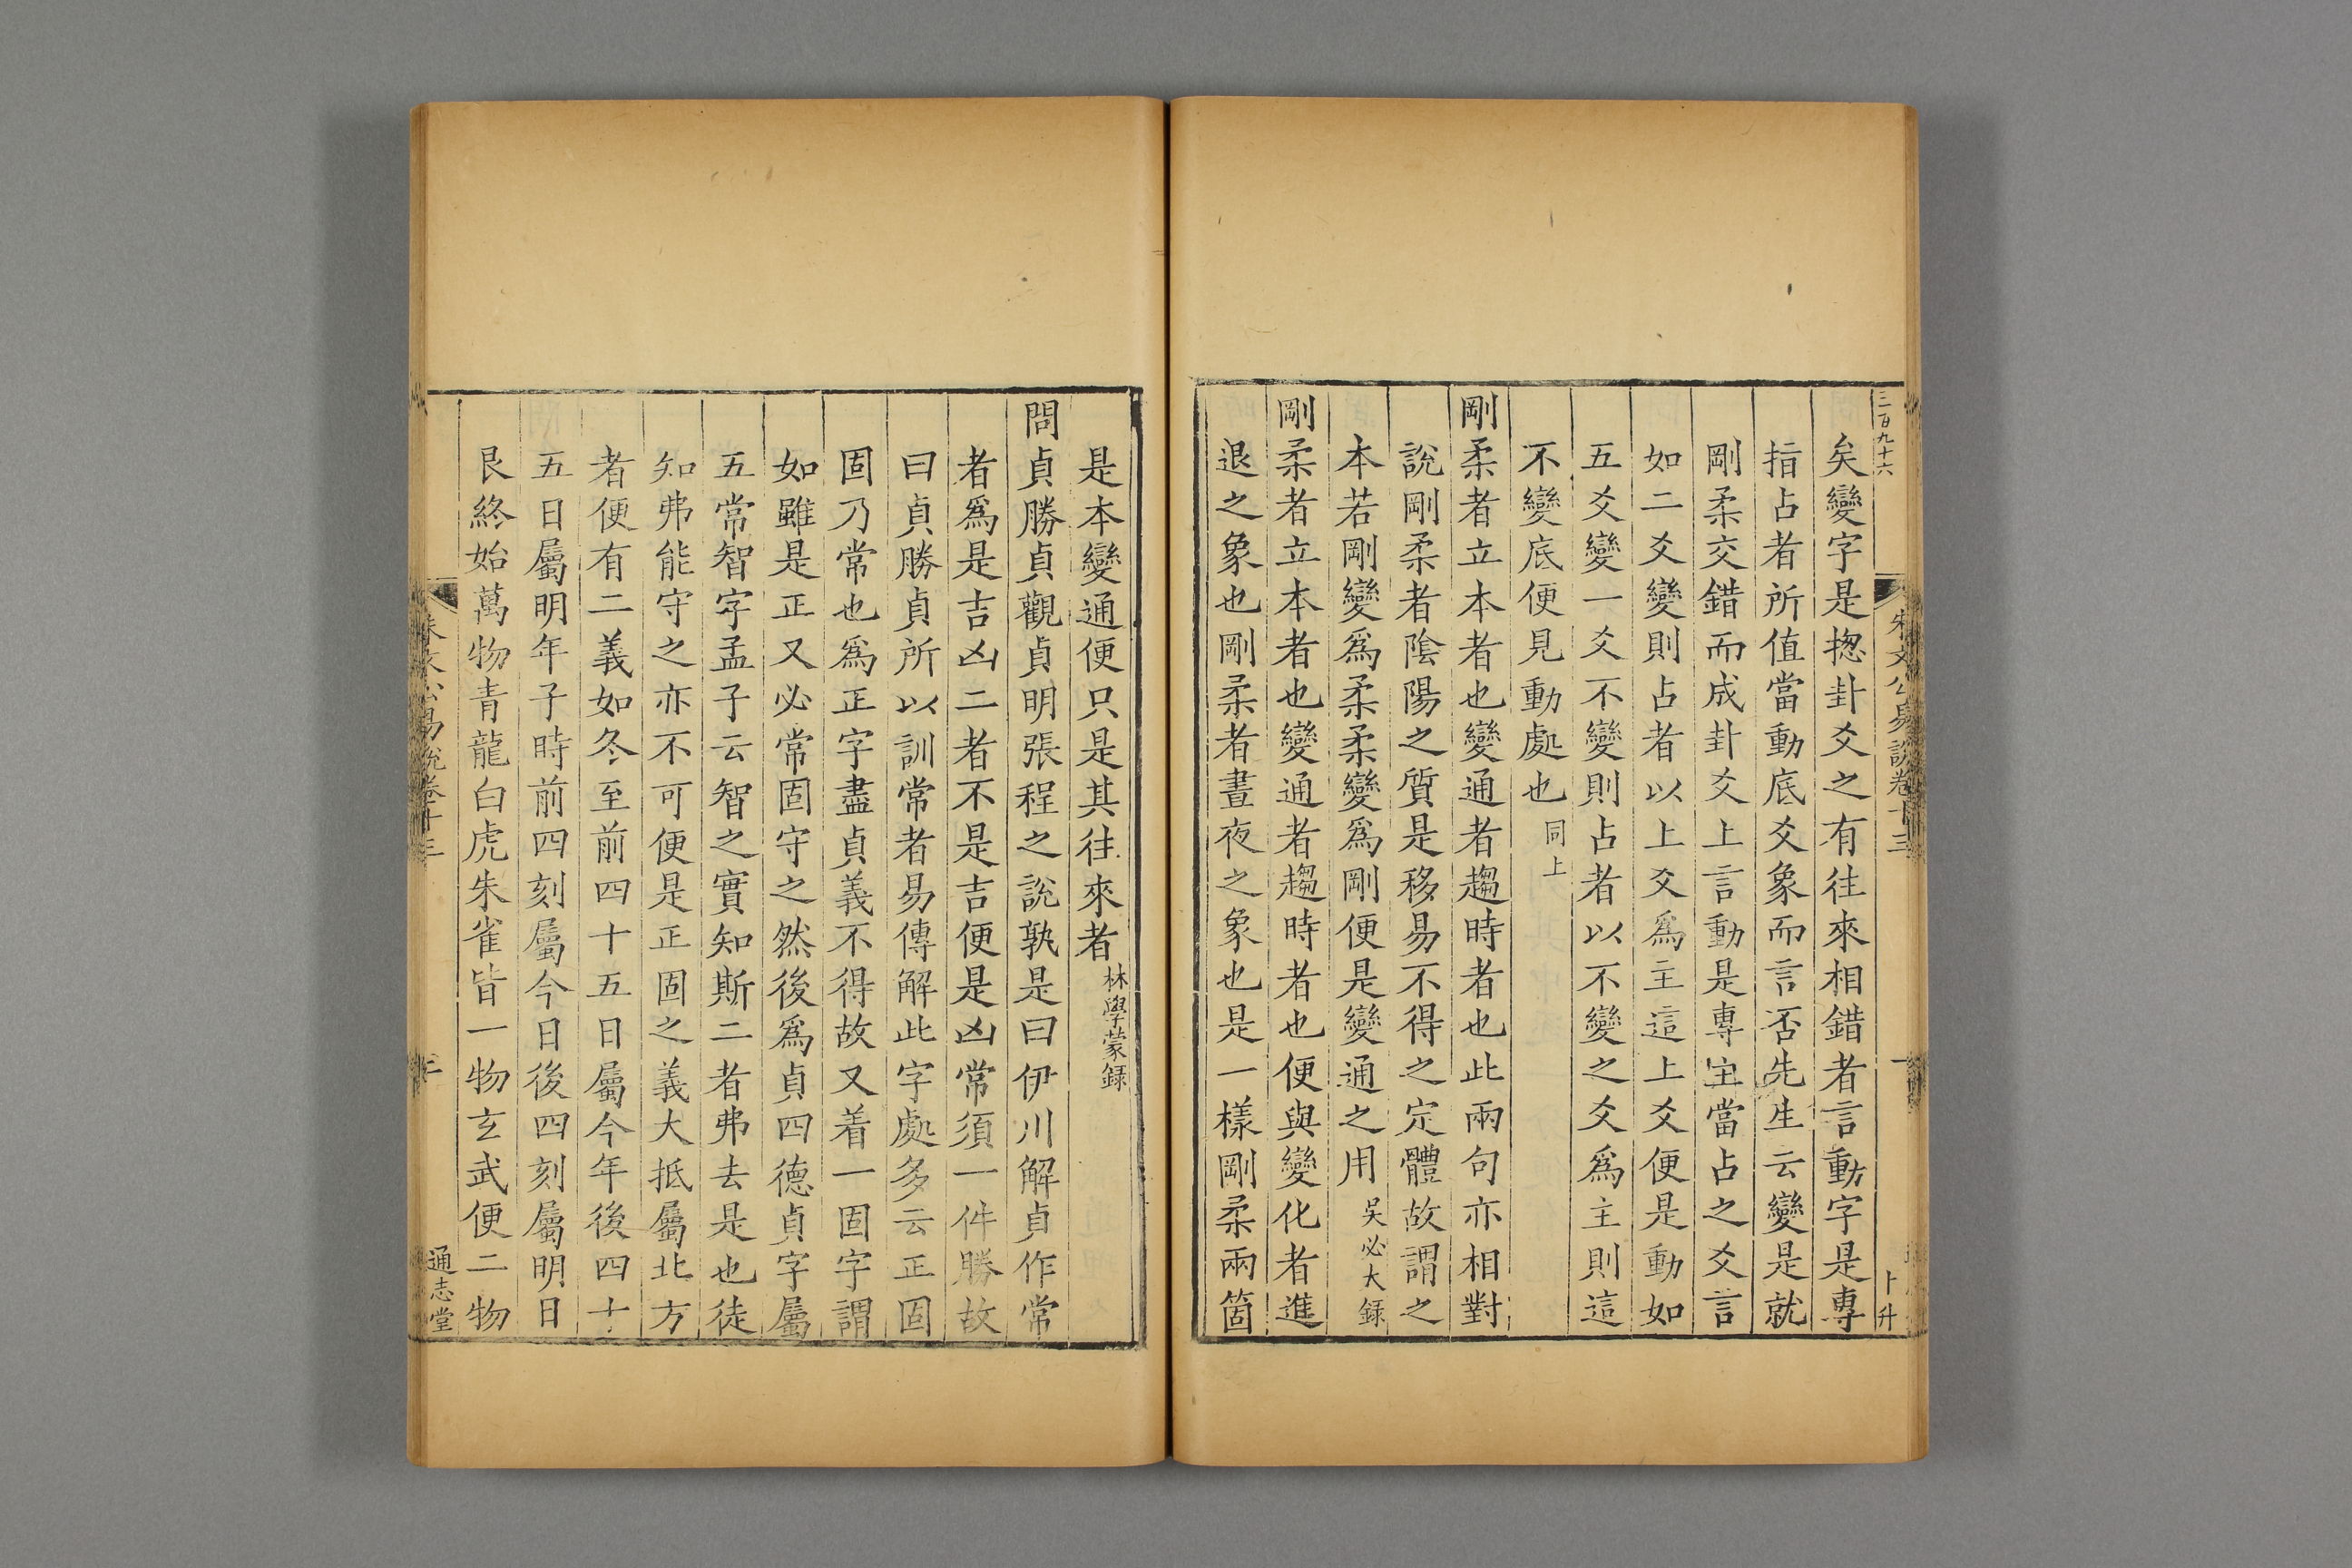 三百九十六
朱文公易說卷十三
一
卜升
矣變字是揔卦爻之有往來相錯者言動字是專
指占者所值當動底爻象而言否先生云變是就
剛柔交錯而成卦爻上言動是專主當占之爻言
如二爻變則占者以上爻爲主這上爻便是動如
五爻變一爻不變則占者以不變之爻爲主則這
不變底便見動處也同上
剛柔者立本者也變通者趨時者也此兩句亦相對
說剛柔者陰陽之質是移易不得之定體故謂之
本若剛變爲柔柔變爲剛便是變通之用吳必大録
剛柔者立本者也變通者趨時者也便與變化者進
退之象也剛柔者晝夜之象也是一樣剛柔兩箇
是本變通便只是其往來者林學蒙録
問貞勝貞觀貞明張程之說孰是曰伊川解貞作常
者爲是吉凶二者不是吉便是凶常須一件勝故
曰貞勝貞所以訓常者易傳解此字處多云正固
固乃常也爲正字盡貞義不得故又着一固字謂
如雖是正又必常固守之然後爲貞四德貞字屬
五常智字孟子云智之實知斯二者弗去是也徒
知弗能守之亦不可便是正固之義大抵屬北方
者便有二義如冬至前四十五日屬今年後四十
五日屬明年子時前四刻屬今日後四刻屬明日
艮終始萬物青龍白虎朱雀皆一物玄武便二物
朱文公易說卷十三
二
通志堂